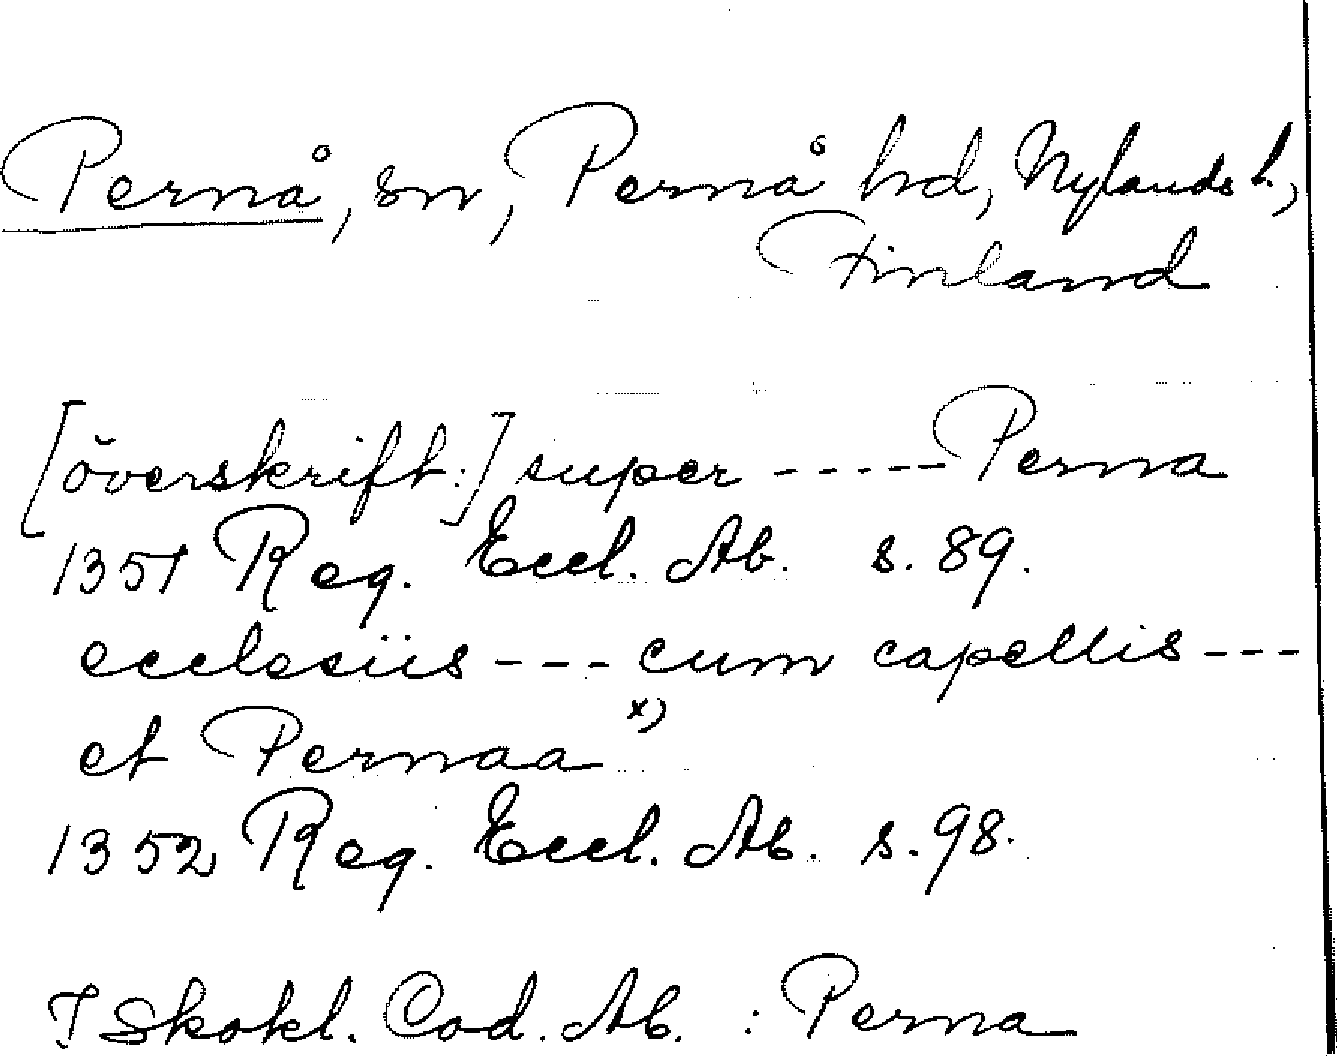 Pernå, sn, Pernå hd, Nylands l.,
Finland
[överskrift:] super ----- Perna
1351 Reg. Eccl. Ab. s. 89.
ecclesiis --- cum capellis ---
et Pernaa x)
1352 Reg. Eccl. Ab. s. 98.
I Skokl. Cod. Ab. : Perna